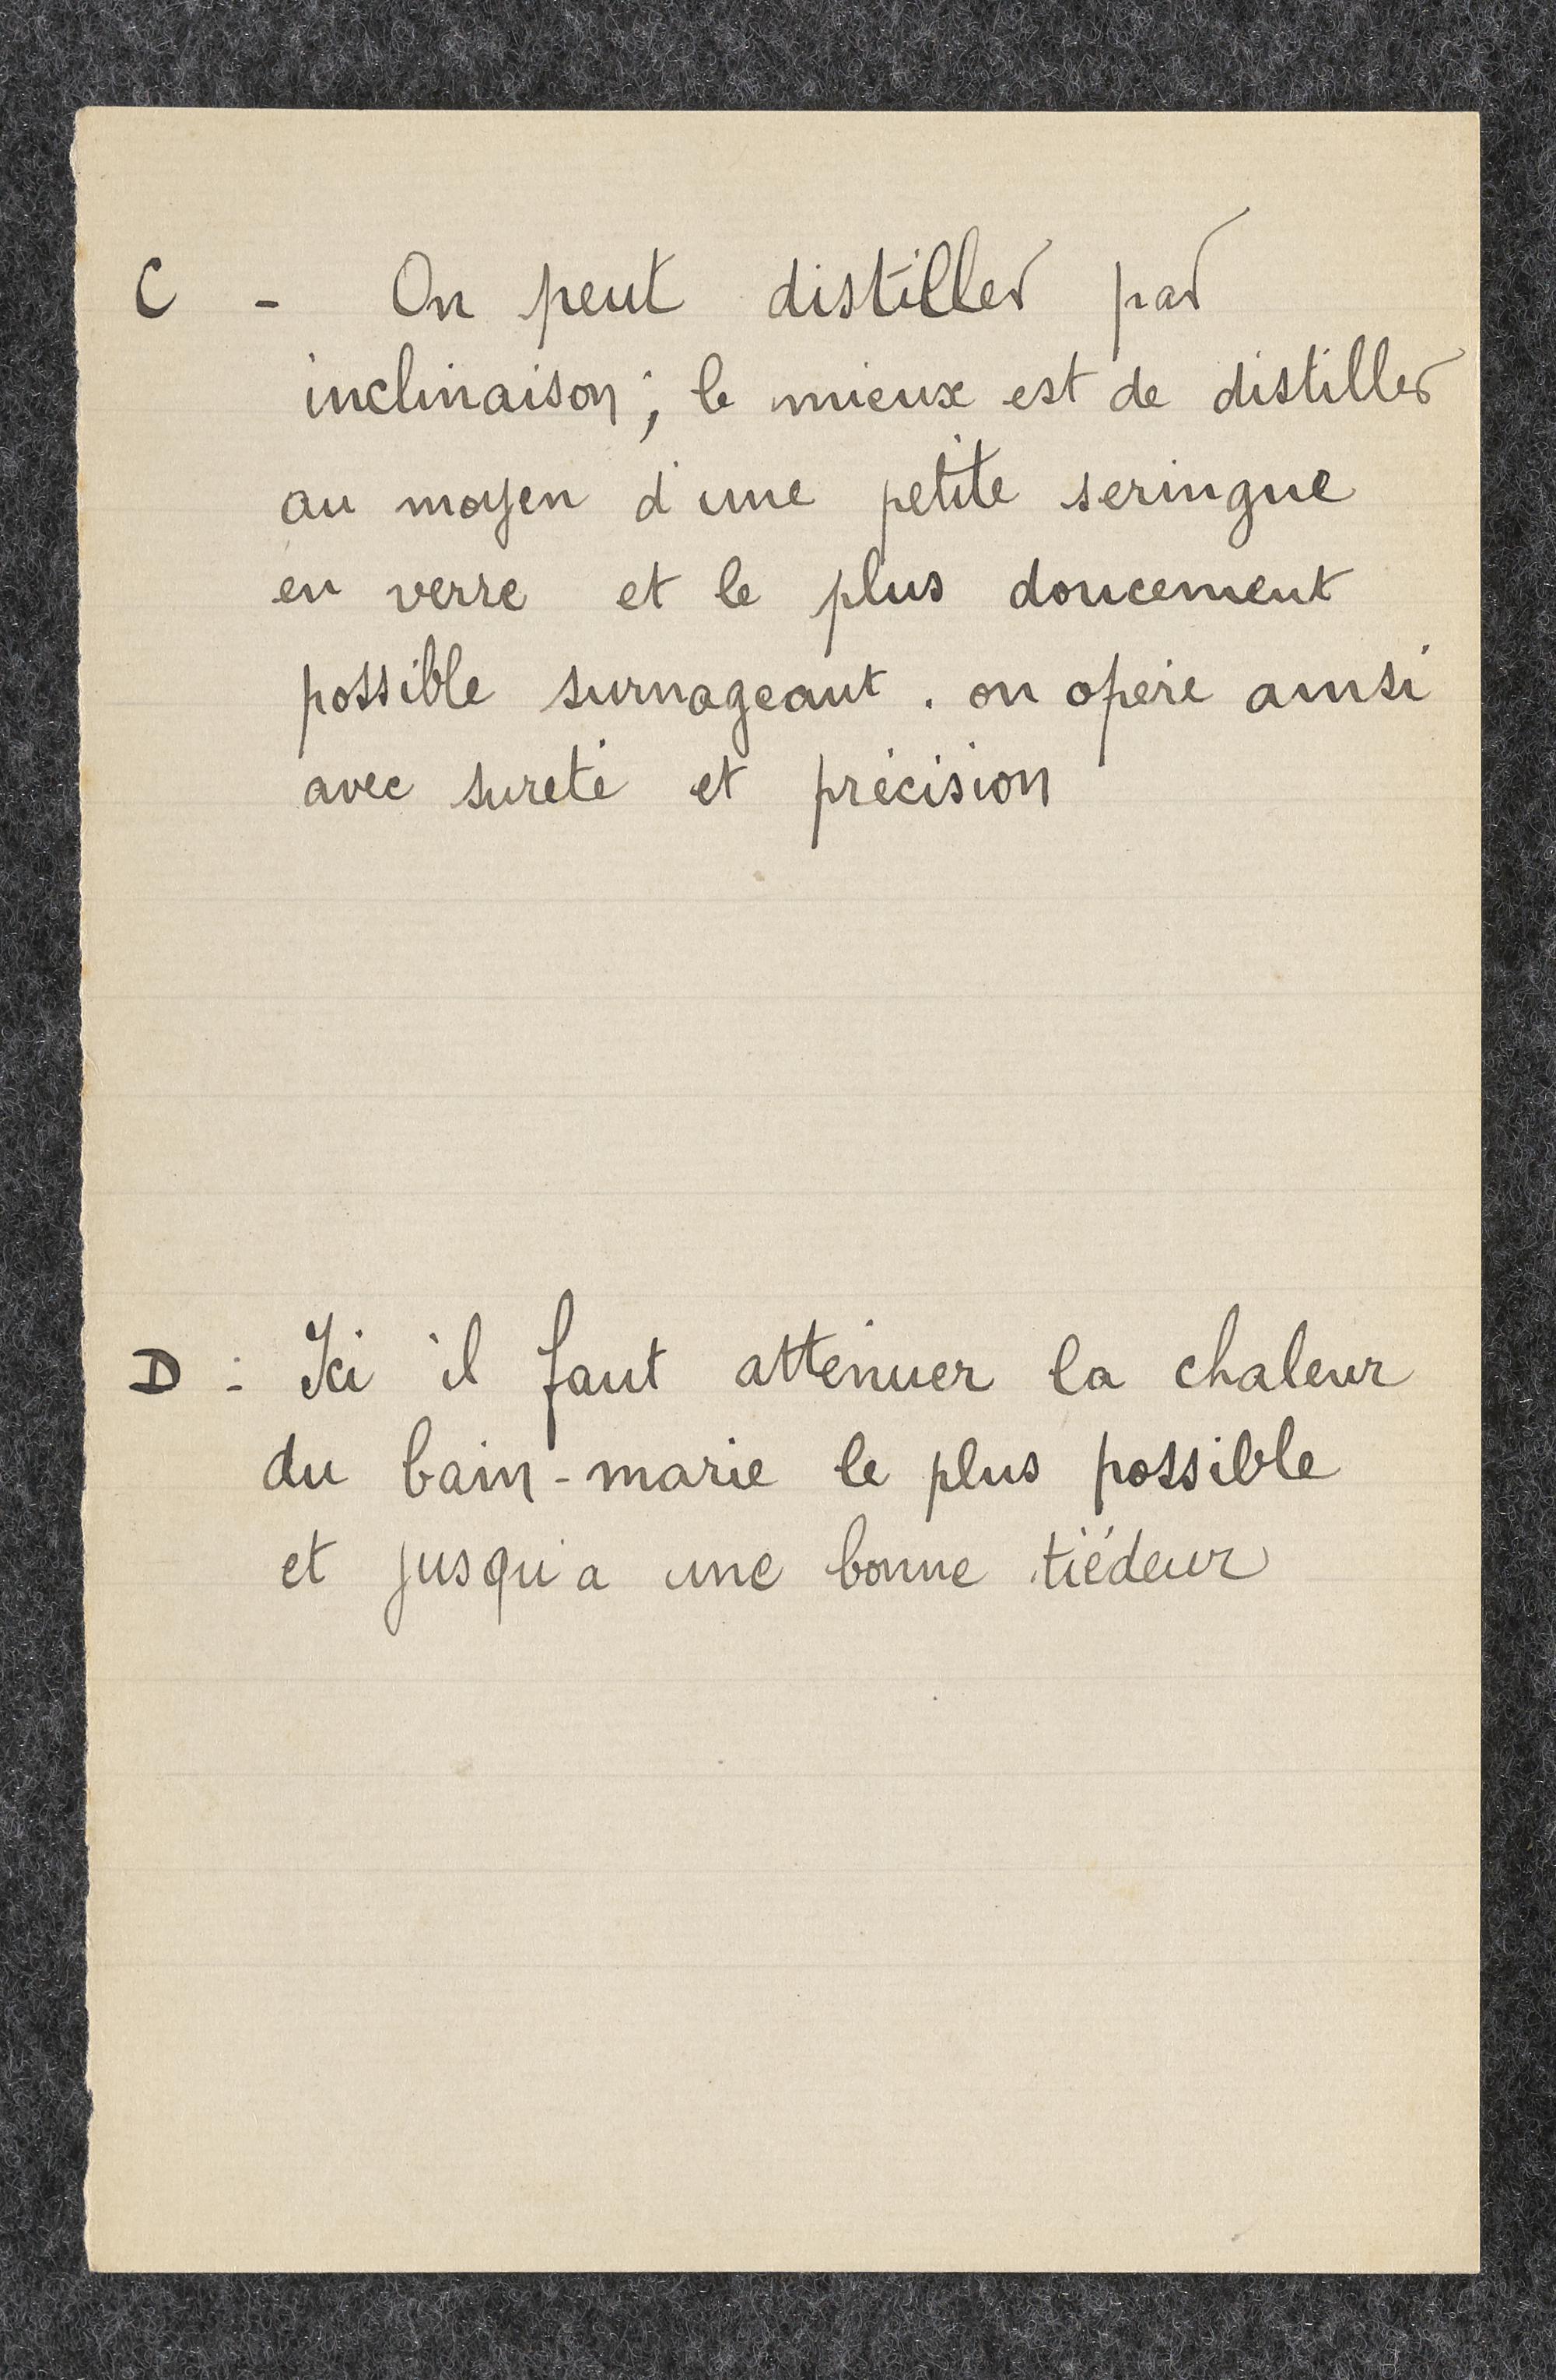 C - On peut distiller par
inclinaison; le mieux est de distiller
au moyen d'une petite seringue
en verre et le plus doucement
possible surnageant. on opère ainsi
avec sureté et précision
D - Ici il faut attenuer la chaleur
du bain-marie le plus possible
et jusqu'a une bonne tiédeur